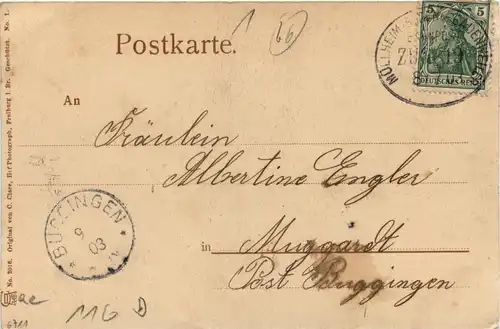 1
66
Postkarte.
5 5
DEUTSCHES REICH
MÜLLHEIM-BADENWEILER
ZUG 19
An
Fräulein
Albertine Engler
in Muggardt
Post Buggingen
BUGGINGEN
9
03
No. 2016. Original von C. Clare, Hof Photograph, Freiburg i. Br. Geschützt. No. 1.
ae
6711
116 D